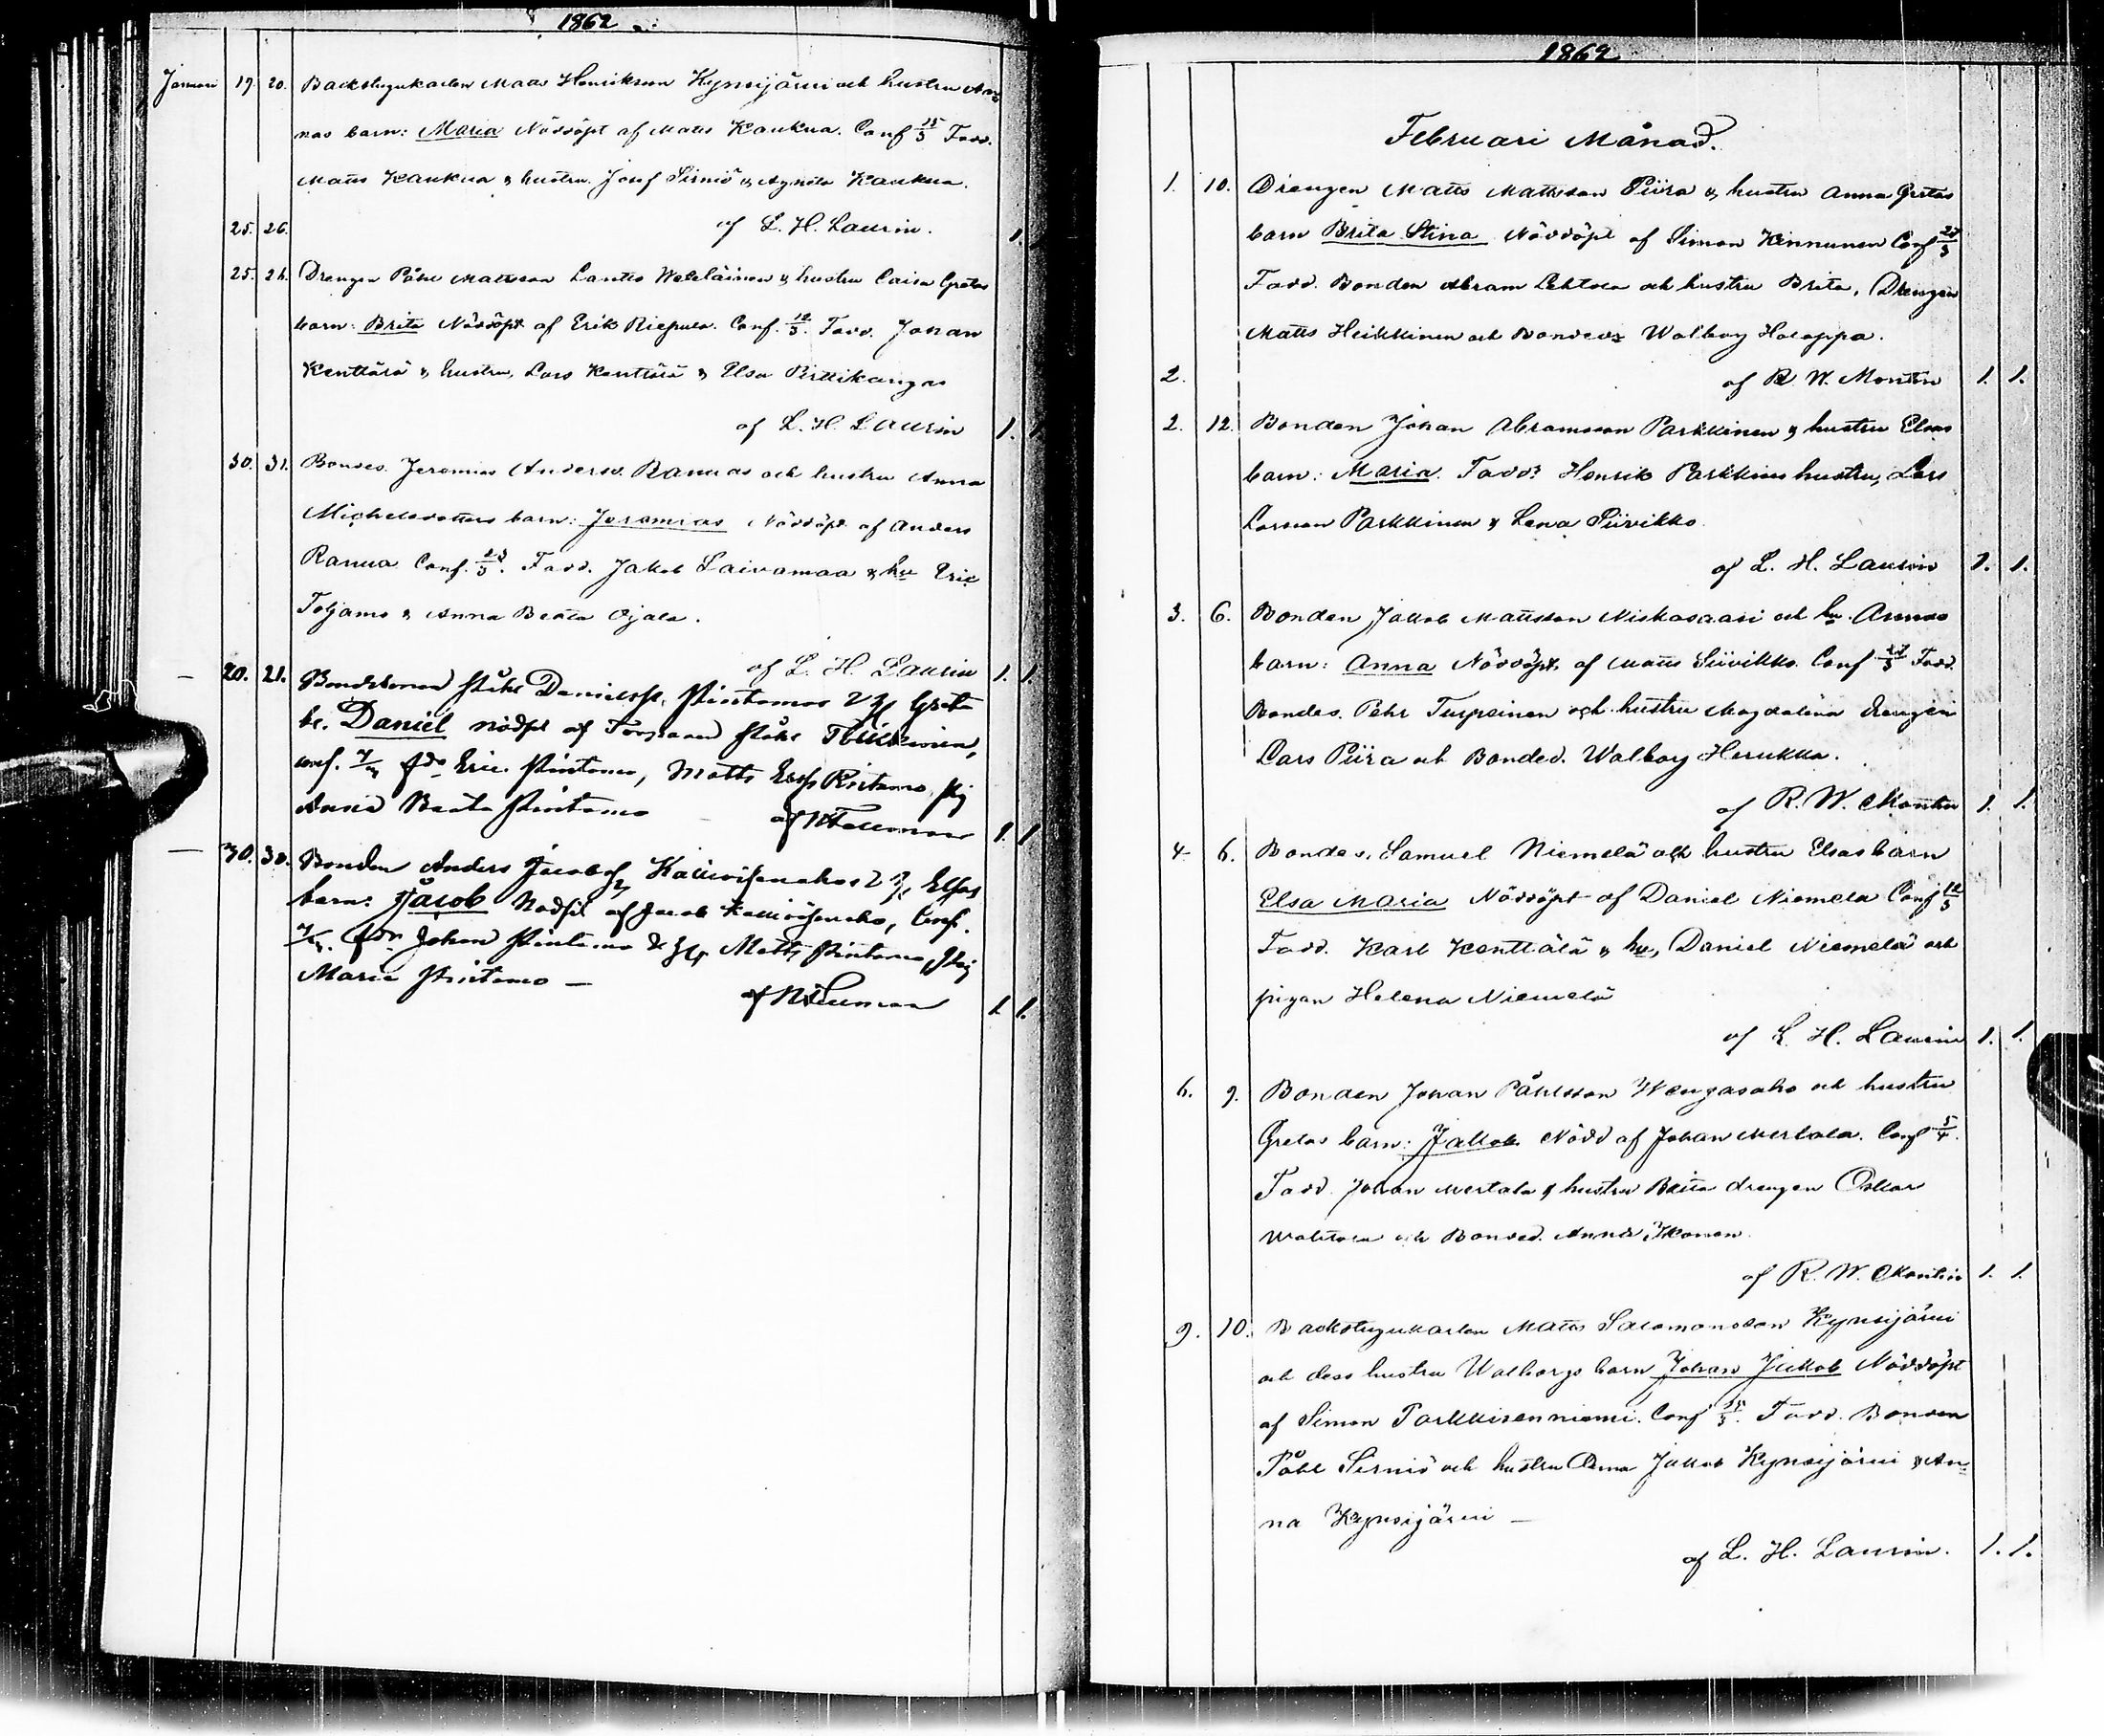 1862
Januari 19. 20. Backstugukarlen Matts Henriksson Kynsijärvi och hustru An=
nas barn: Maria Nöddöpt af Matts Kaukua. Conf 15/3 Fadd.
Matts Kaukua & hustru. Josef Sirniö & Agneta Kaukua.
25. 26. af L. H. Laurin. 1.
25. 26. Drengen Påhl Mattsson Lantto & hustru Caisa Gretas
barn: Brita Nöddöpt af Erik Riepula. Conf. 12/3. Fadd. Johan
Kenttälä & hustru, Lars Kenttälä & Elsa Pirttikangas
af L. H. Laurin 1. 1.
30. 31. Bondes. Jeremias Anderss. Ranuas och hustru Anna
Michelsdotters barn: Jeremias Nöddöpt af Anders
Ranua Conf. 23/3. Fadd. Jakob Laivamaa & hu Eric
Toljamo & Anna Beata Ojala.
af L. H. Laurin 1. 1.
20. 21. Bondesonen Påhl Danielss. Pintamos Greta
b. Daniel nöddpt af Påhl
conf. Eric Pintamo, Matts Pintamo, pig
Anna Beata Pintamo 1. 1
30. 30. Bonden Anders Jacobss. Elsas
barn: Jacob Nöddpt af Jacob Conf.
Johan Pintamo & Matts Pintamo, pig
Maria Pintamo —
1. 1.
1862
Februari Månad.
1. 10. Drengen Matts Mattsson Piira & hustru Anna Gretas
barn Brita Stina Nöddöpt af Simon Kinnunen Conf 23/3
Fadd. Bonden Abram Lehtola och hustru Brita, Drengen
Matts Heikkinen och Bonded. Walborg Holappa.
2. af R. W. Montin 1. 1.
2. 12. Bonden Johan Abramsson Parkkinen & hustru Elsas
barn: Maria. Fadd: Henrik Parkkinen hustru, Lars
Larsson Parkkinen & Lena Siivikko
af L. H. Laurin 1. 1.
3. 6. Bonden Jakob Mattsson Niskasaari och hu. Annas
barn: Anna Nöddöpt. af Matts Siivikko. Conf 23/3 Fadd.
Bondes. Pehr Turpeinen och hustru Magdalena Drengen
Lars Piira och Bonded. Walborg Herukka.
af R. W. Montin 1. 1.
4. 6. Bondes. Samuel Niemelä och hustru Elsas barn
Elsa Maria Nöddöpt af Daniel Niemelä Conf 12/3
Fadd. Karl Kenttälä & hu, Daniel Niemelä och
pigan Helena Niemelä
af L. H. Laurin 1. 1.
6. 9. Bonden Johan Påhlsson Wengasaho och hustru
Gretas barn: Jakob Nödd af Johan Mertala. Conf 5/4.
Fadd. Johan Mertala & hustru Brita drengen Oskar
och Bonded. Anna Ikonen
af R. W. Montin 1. 1.
9. 10. Backstugukarlen Matts Salomonsson Kynsijärvi
och dess hustru Walborgs barn Johan Jakob Nöddöpt
af Simon Parkkisenniemi. Conf 15/3. Fadd. Bonden
Påhl Sirniö och hustru Anna Jakob Kynsijärvi & An=
na Kynsijärvi —
af L. H. Laurin. 1. 1.